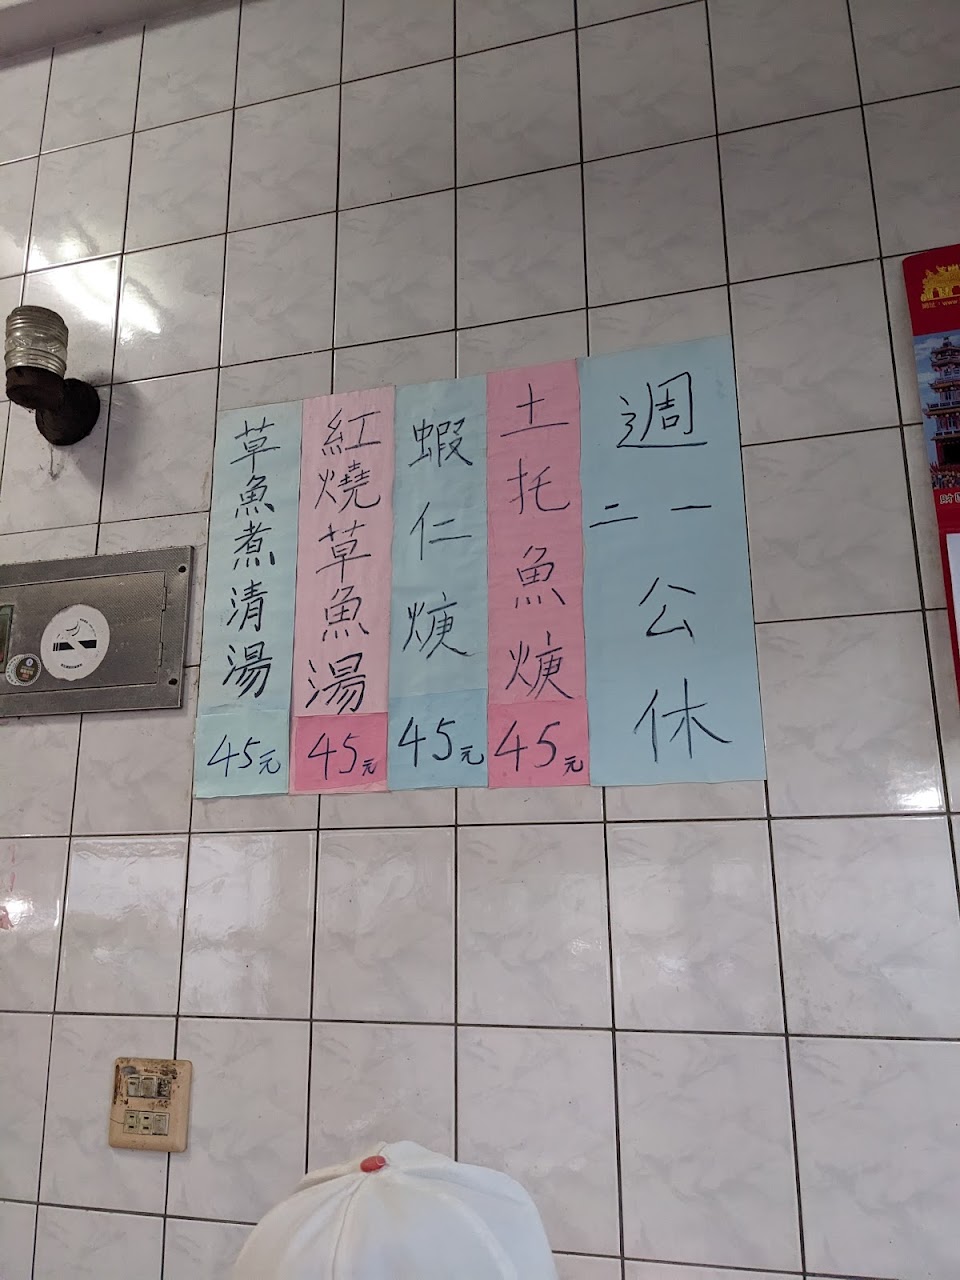 週一二公休
土托魚焿
45元
蝦仁焿
45元
紅燒草魚湯
45元
草魚煮清湯
45元